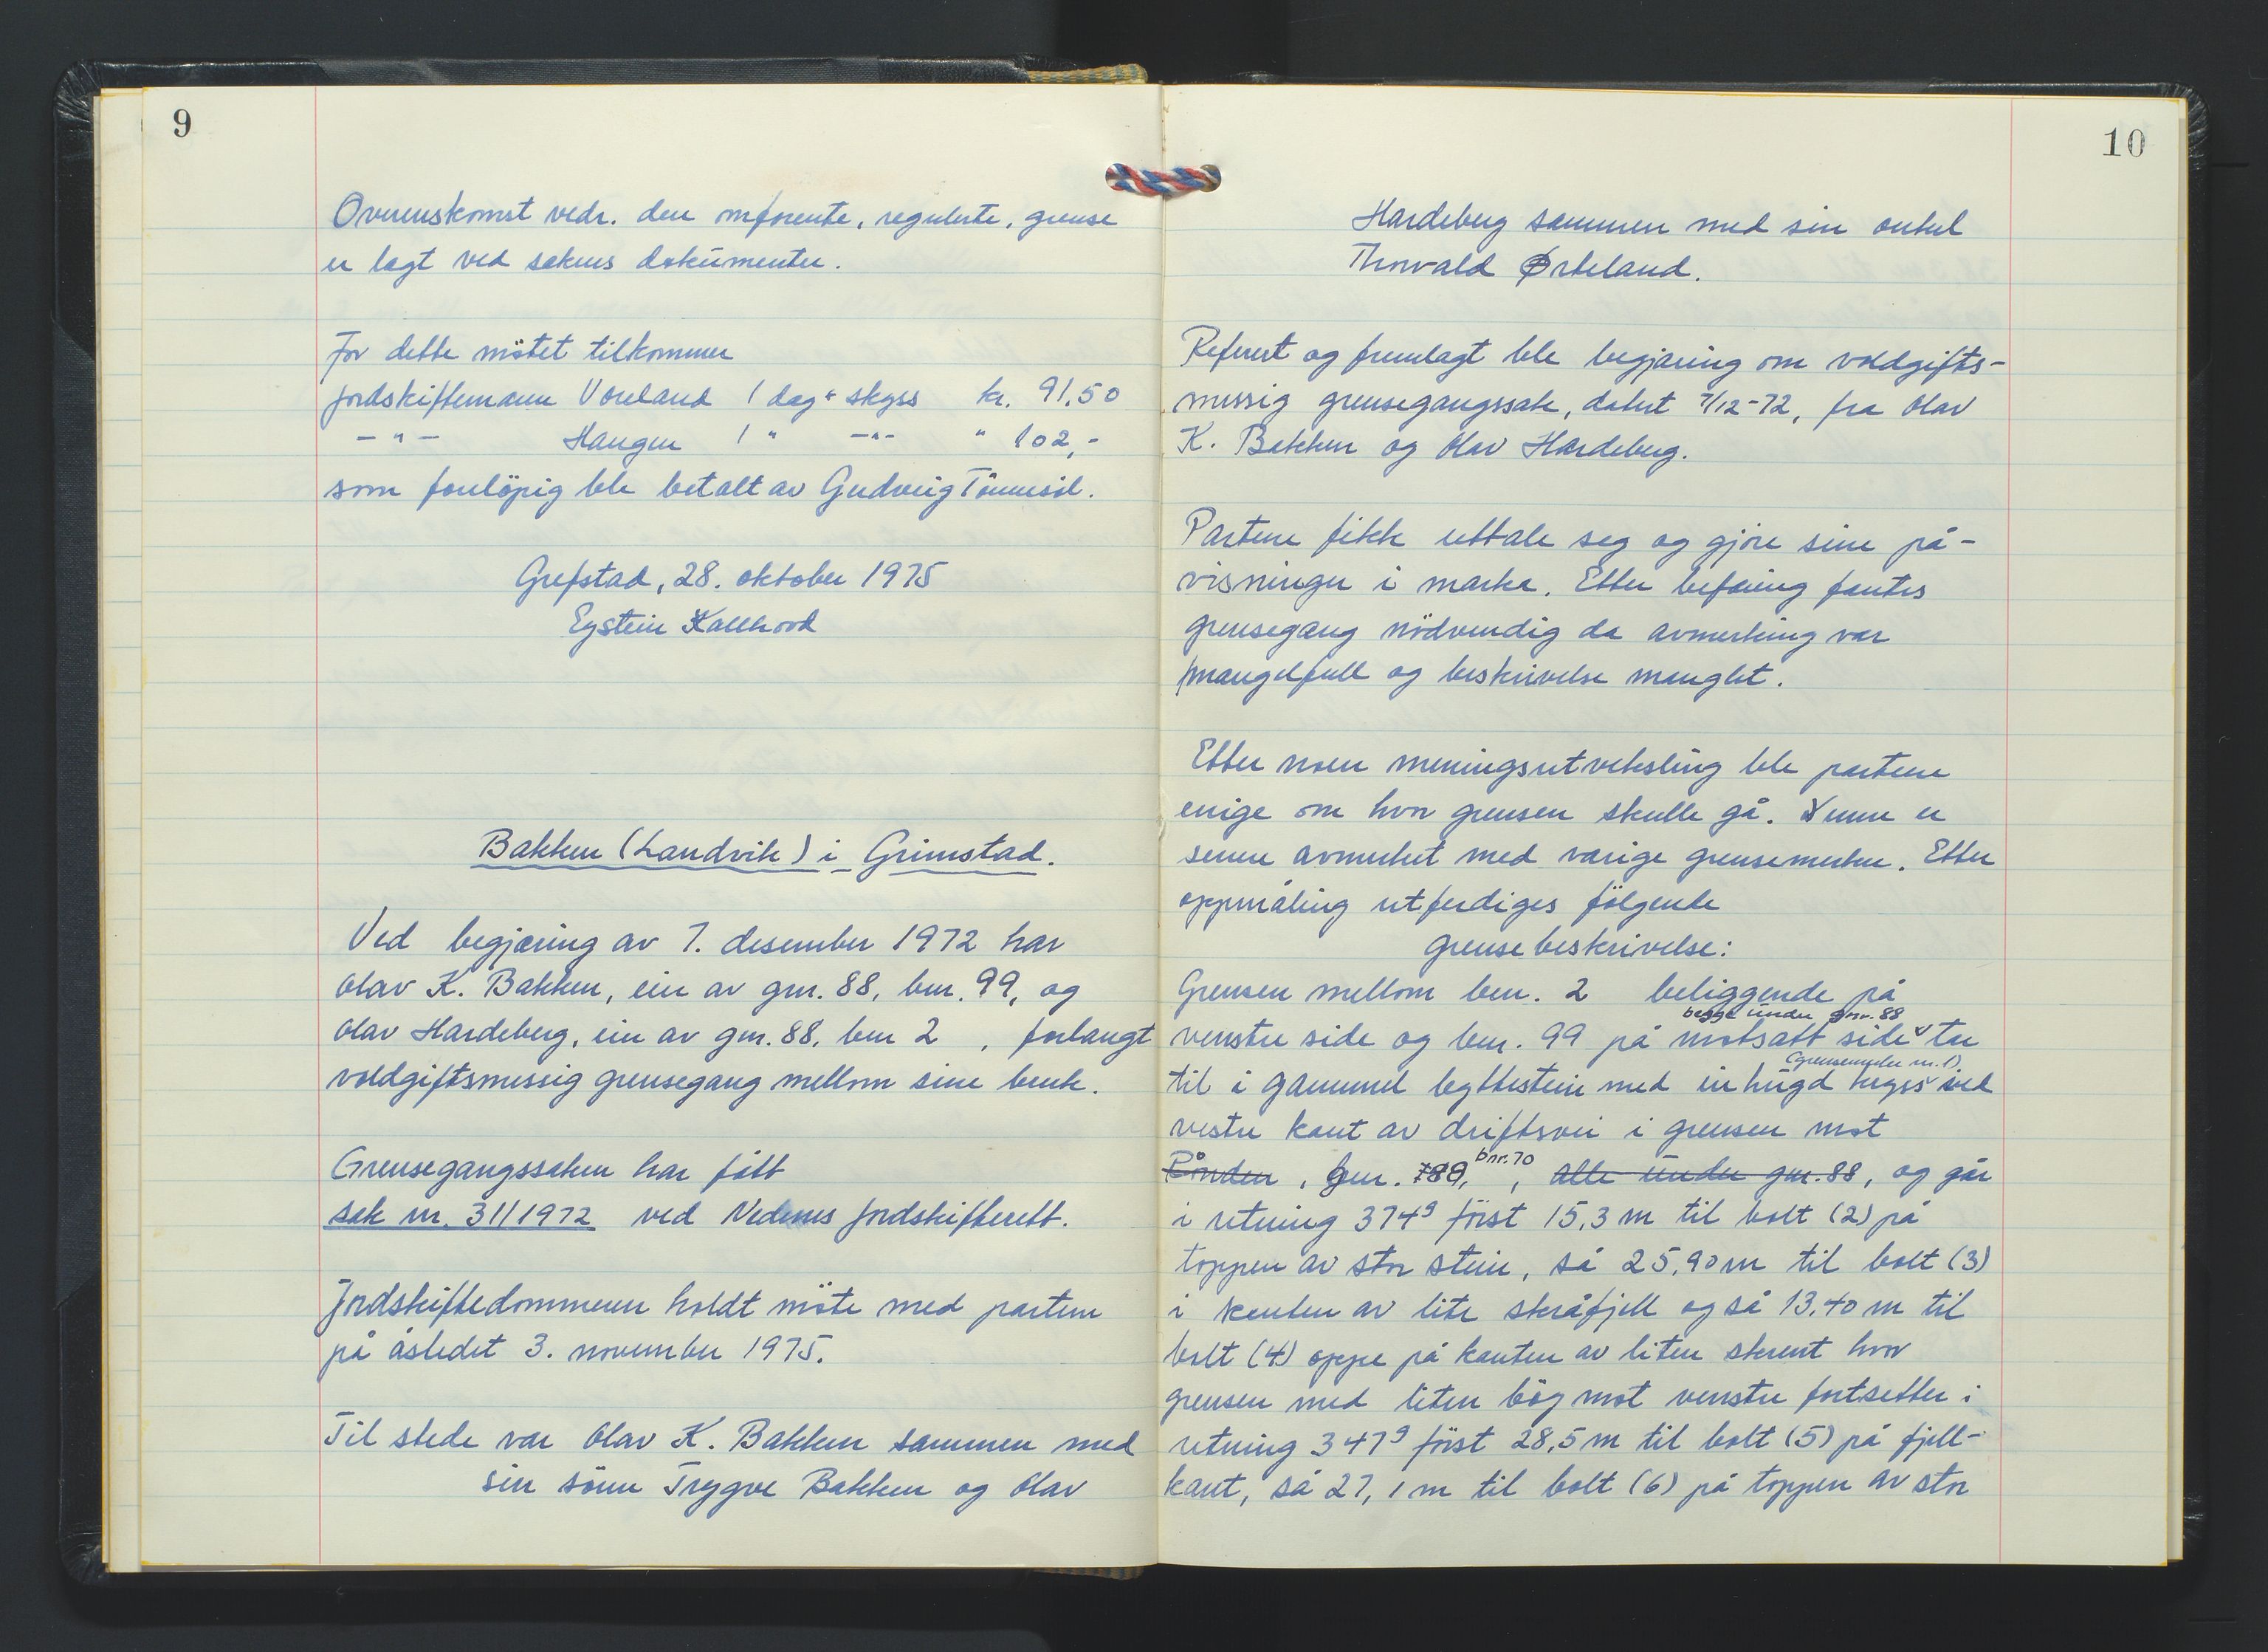 9
Overenskomst vedr. den omforente, regulerte, grense
er lagt ved sakens dokumenter.
For dette møtet tilkommer
jordskiftemann Voreland 1 dag + skyss kr. 91,50
- " - Haugen 1 " -"- " 102,-
som foreløpig ble betalt av Gudveig Tønnesøl.
Grefstad, 28. oktober 1975
Eystein
Bakken (Landvik) i Grimstad.
Ved begjæring av 7. desember 1972 har
Olav K. Bakken, eier av gnr. 88, bnr. 99, og
Olav Hardeberg, eier av gnr. 88, bnr 2 , forlangt
voldgiftsmessig grensegang mellom sine bruk.
Grensegangssaken har fått
sak nr. 31/1972 ved Nedenes jordskifterett.
Jordskiftedommeren holdt møte med partene
på åstedet 3. november 1975.
Til stede var Olav K. Bakken sammen med
sin sønn Trygve Bakken og Olav
10
Hardeberg sammen med sin onkel
Thorvald Ørteland.
Referert og fremlagt ble begjæring om voldgifts-
messig grensegangssak, datert 7/12-72, fra Olav
K. Bakken og Olav Hardeberg.
Partene fikk uttale seg og gjøre sine på-
visninger i marka. Etter befaring fantes
grensegang nødvendig da avmerking var
mangelfull og beskrivelse manglet.
Etter noen meningsutveksling ble partene
enige om hvor grensen skulle gå. Denne er
senere avmerket med varige grensemerker. Etter
oppmåling utferdiges følgende
grensebeskrivelse:
Grensen mellom bnr. 2 beliggende på
begge under gnr. 88
venstre side og bnr. 99 på motsatt side tar
(grensemerke nr. 1)
til i gammel byttestein med inhugd kryss ved
vestre kant av driftsvei i grensen mot
bnr. 70
Rånden, gnr. 88, , alle under gnr. 88, og går
i retning 374g først 15,3 m til bolt (2) på
toppen av stor stein, så 25,90 m til bolt (3)
i kanten av lite skråfjell og så 13,40 m til
bolt (4) oppe på kanten av liten skrent hvor
grensen med liten bøg mot venstre fortsetter i
retning 347g først 28,5 m til bolt (5) på fjell-
kant, så 27,1 m til bolt (6) på toppen av stor